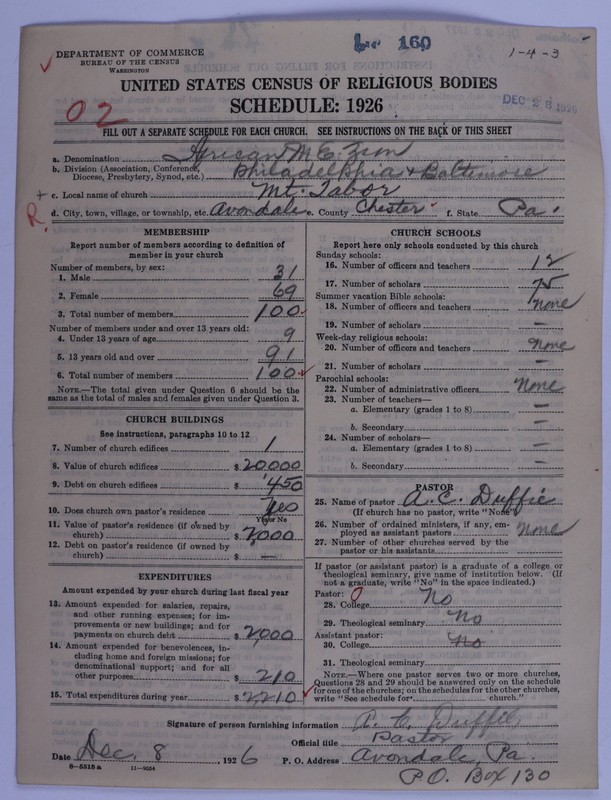 160
1-4-3
DEPARTMENT OF COMMERCE
BUREAU OF THE CENSUS
WASHINGTON
UNITED STATES CENSUS OF RELIGIOUS BODIES
SCHEDULE: 1926
DEC 28 1926
02
FILL OUT A SEPARATE SCHEDULE FOR EACH CHURCH. SEE INSTRUCTIONS ON THE BACK OF THIS SHEET
a. Denomination African M. E. Zion
b. Division (Association, Conference, Diocese, Presbytery, Synod, etc.) Philadelphia & Baltimore
+ c. Local name of church Mt. Tabor
R. d. City, town, village, or township, etc. Avondale e. County Chester f. State Pa.
MEMBERSHIP
Report number of members according to definition of
member in your church
Number of members, by sex:
1. Male 31
2. Female 69
3. Total number of members 100
Number of members under and over 13 years old:
4. Under 13 years of age 9
5. 13 years old and over 91
6. Total number of members 100
NOTE.—The total given under Question 6 should be the
same as the total of males and females given under Question 3.
CHURCH BUILDINGS
See instructions, paragraphs 10 to 12
7. Number of church edifices 1
8. Value of church edifices $ 20000
9. Debt on church edifices $ 450
10. Does church own pastor's residence Yes
Yes or No
11. Value of pastor's residence (if owned by
church) $ 2,000
12. Debt on pastor's residence (if owned by
church) $ —
EXPENDITURES
Amount expended by your church during last fiscal year
13. Amount expended for salaries, repairs,
and other running expenses; for im-
provements or new buildings; and for
payments on church debt $ 2,000
14. Amount expended for benevolences, in-
cluding home and foreign missions; for
denominational support; and for all
other purposes $ 210
15. Total expenditures during year $ 2,210
CHURCH SCHOOLS
Report here only schools conducted by this church
Sunday schools:
16. Number of officers and teachers 12
17. Number of scholars 75
Summer vacation Bible schools:
18. Number of officers and teachers none
19. Number of scholars —
Week-day religious schools:
20. Number of officers and teachers none
21. Number of scholars —
Parochial schools:
22. Number of administrative officers None
23. Number of teachers—
a. Elementary (grades 1 to 8) —
b. Secondary —
24. Number of scholars—
a. Elementary (grades 1 to 8) —
b. Secondary —
PASTOR
25. Name of pastor A. C. Duffie
(If church has no pastor, write "None")
26. Number of ordained ministers, if any, em-
ployed as assistant pastors None
27. Number of other churches served by the
pastor or his assistants
If pastor (or assistant pastor) is a graduate of a college or
theological seminary, give name of institution below. (If
not a graduate, write "No" in the space indicated.)
Pastor:
28. College No
29. Theological seminary No
Assistant pastor:
30. College No
31. Theological seminary
NOTE.—Where one pastor serves two or more churches,
Questions 28 and 29 should be answered only on the schedule
for one of the churches; on the schedules for the other churches,
write "See schedule for church."
Signature of person furnishing information A. C. Duffie
Official title Pastor
Date Dec. 8, 1926 P. O. Address Avondale, Pa.
8—5518 a 11—9054
P.O. Box 130